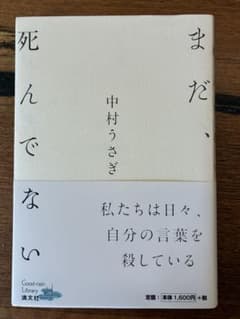 まだ、
死んでない
中村うさぎ
私たちは日々、
自分の言葉を
殺している
Good-rain
Library
定価｜本体1,600円+税